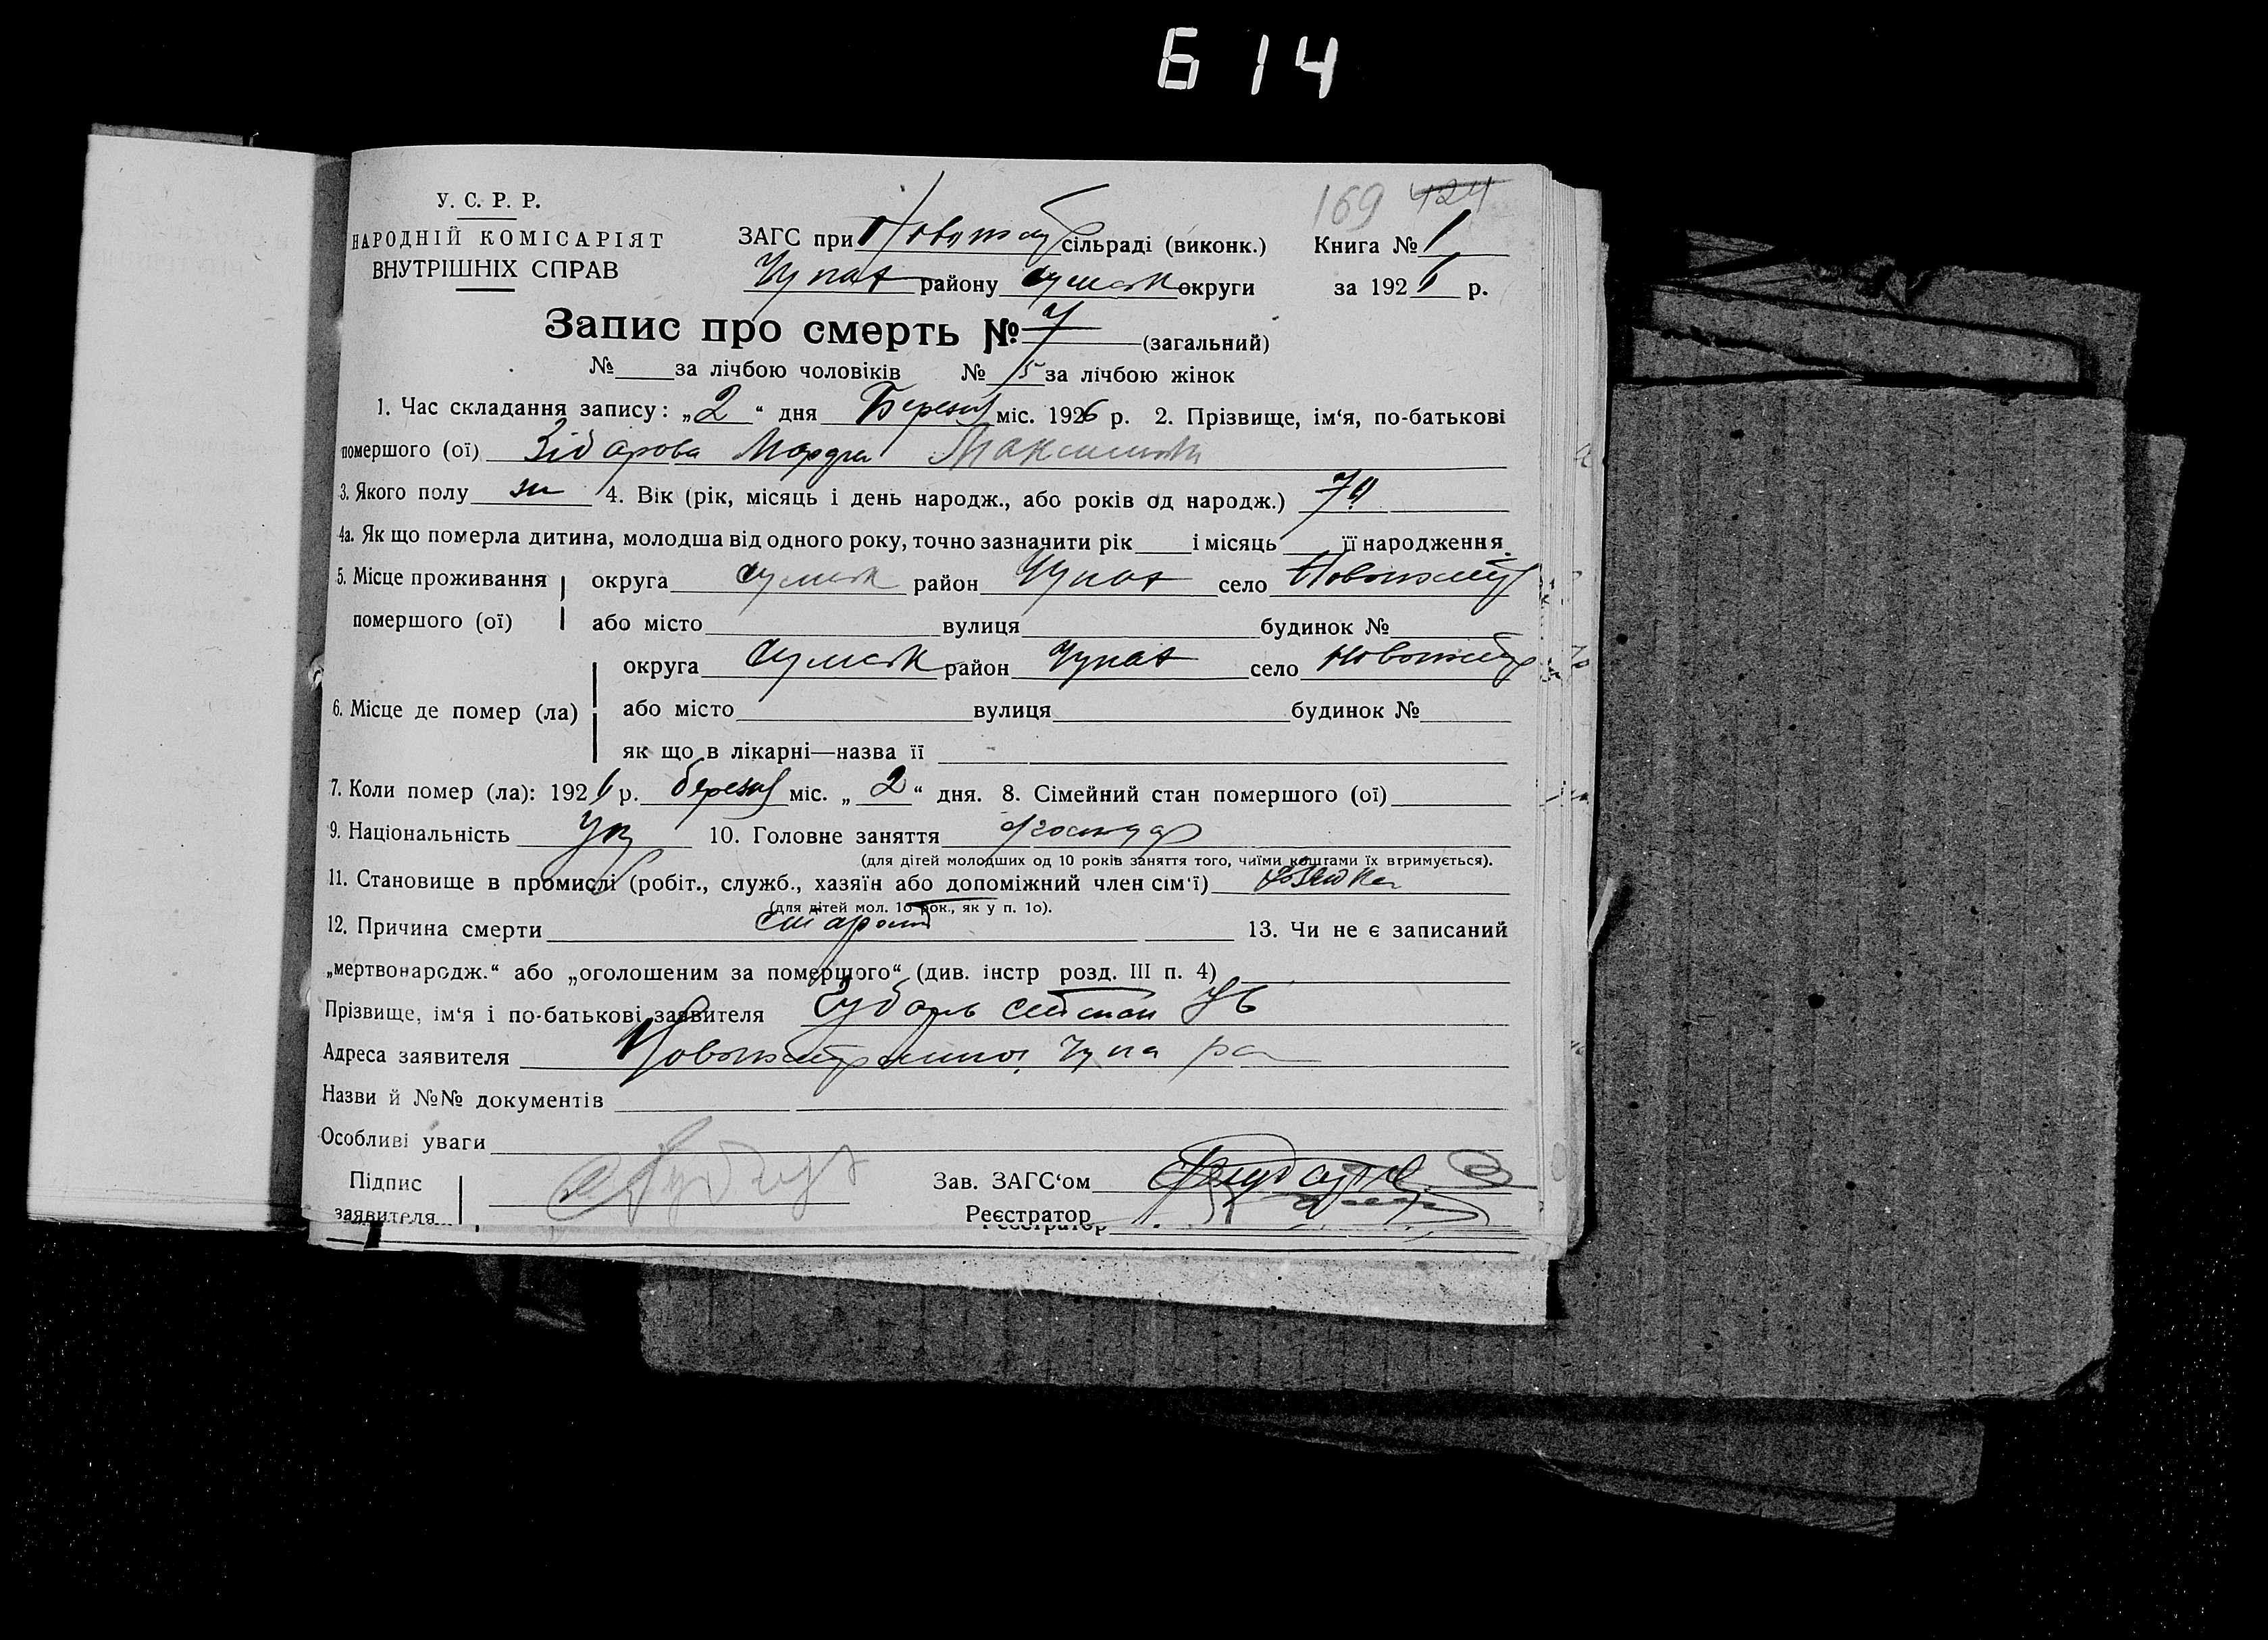 614
169 424
У. С. Р. Р.
НАРОДНІЙ КОМІСАРІЯТ
ВНУТРІШНІХ СПРАВ
ЗАГС при сільраді (виконк.) Книга № 1
Чупах району Сумськ округи за 1926 р.
Запис про смерть № 7 (загальний)
№ за лічбою чоловіків № 5 за лічбою жінок
1. Час складання запису: „2“ дня Березня міс. 1926 р. 2. Прізвище, ім‘я, по-батькові
помершого (ої) Максимовна
3. Якого полу ж 4. Вік (рік, місяць і день народж., або років од народж.) 70
4а. Як що померла дитина, молодша від одного року, точно зазначити рік і місяць її народження.
5. Місце проживання округа Сумськ район Чупах село
помершого (ої) або місто вулиця будинок №
округа Сумськ район Чупах село
6. Місце де помер (ла) або місто вулиця будинок №
як що в лікарні—назва її
7. Коли помер (ла): 1926 р. березня міс. „2“ дня. 8. Сімейний стан помершого (ої)
9. Національність Укр 10. Головне заняття
(для дітей молодших од 10 років заняття того, чиїми коштами їх втримується).
11. Становище в промислі (робіт., служб., хазяїн або допоміжний член сім‘ї)
(для дітей мол. 10 рок., як у п. 10).
12. Причина смерти старость 13. Чи не є записаний
„мертвонародж.“ або „оголошеним за помершого“ (див. інстр розд. III п. 4)
Прізвище, ім‘я і по-батькові заявителя
Адреса заявителя Чупа ра
Назви й №№ документів
Особливі уваги
Підпис Зав. ЗАГС‘ом
заявителя Реєстратор
Реєстратор